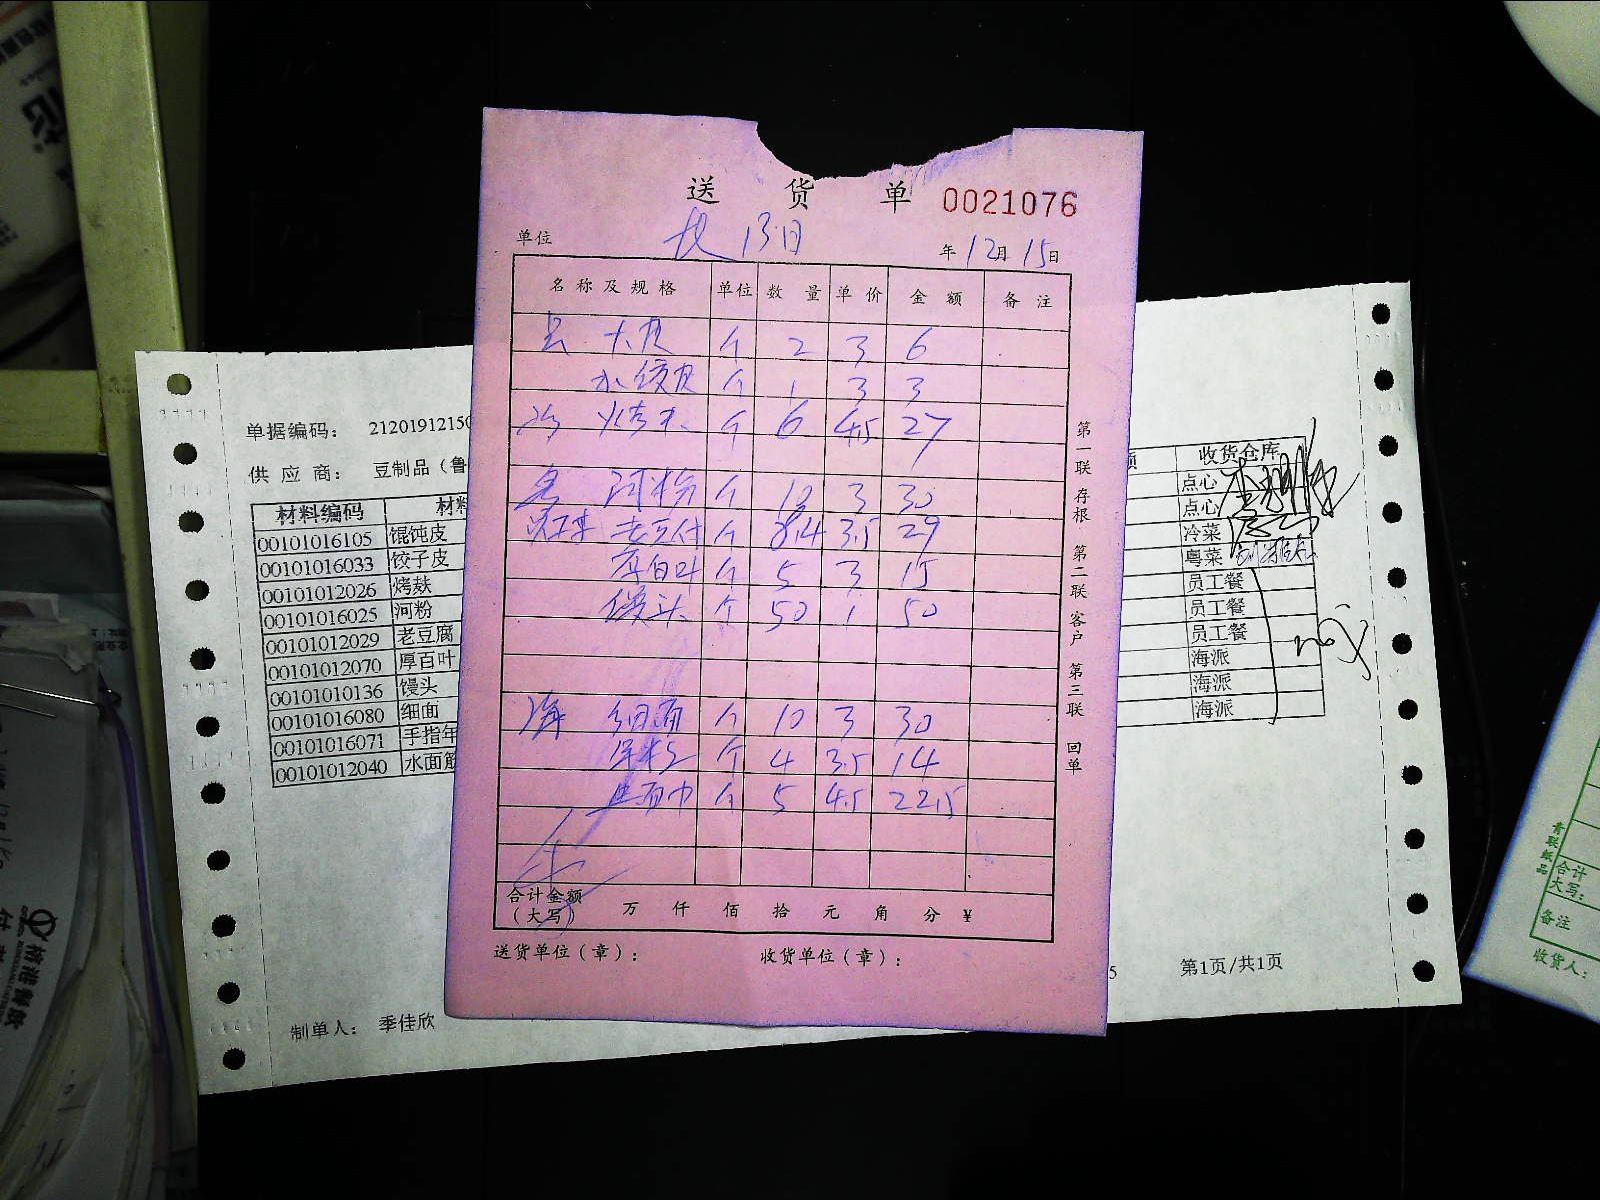 送 货 单 0021076
单位 年 12月 15日
名称及规格 单位 数量 单价 金额 备注
大皮 个 2 3 6
水饺皮 个 1 3 3
冷 烤夫 个 6 4.5 27
河粉 个 10 3 30
老豆付 个 8.4 3.5 29
厚百叶 个 5 3 15
馒头 个 50 1 50
海 细面 个 10 3 30
个 4 3.5 14
生面巾 个 5 4.5 22.5
合计金额
(大写) 万 仟 佰 拾 元 角 分 ¥
送货单位(章): 收货单位(章):
第一联 存根 第二联 客户 第三联 回单
单据编码: 21201912150
供 应 商: 豆制品(鲁
材料编码 材料 收货仓库
00101016105 馄饨皮 点心
00101016033 饺子皮 点心
00101012026 烤麸 冷菜
00101016025 河粉 粤菜
00101012029 老豆腐 员工餐
00101012070 厚百叶 员工餐
00101010136 馒头 员工餐
00101016080 细面 海派
00101016071 手指年 海派
00101012040 水面筋 海派
制单人: 季佳欣
5 第1页/共1页
青联纸品
合计
大写:
备注
收货人: